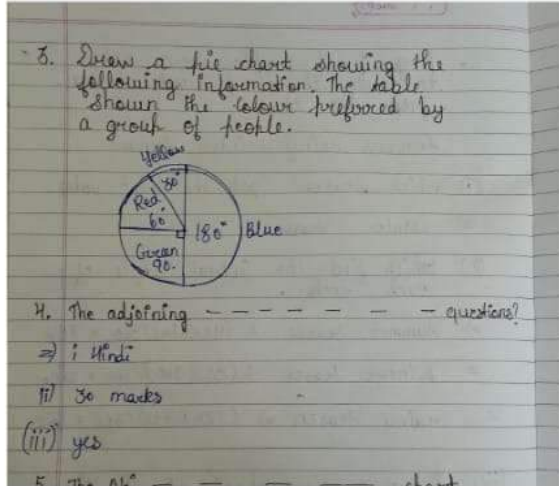 3. Draw a pie chart showing the
following information. The table
shown the colour prefooced by
a group of people.
Yellow
30°
Red
60°
180°
Blue
Green
90.
4. The adjoining - - - - - - - questions?
⇒ i Hindi
(ii) 30 marks
(iii) yes
5. The — — — — chart